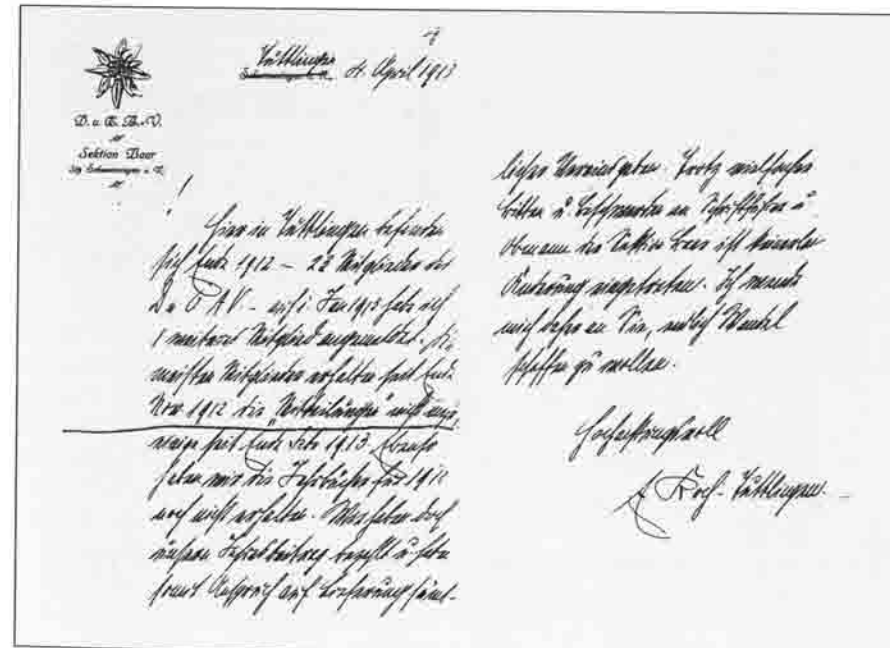 Tuttlingen 4. April 1913
D. u. Ö. A.-V.
Sektion Baar
Sitz Schwenningen a. N.
!
Hier in Tuttlingen befinden
sich Ende 1912 – 22 Mitglieder des
D u Ö A V – auf 1. Jan 1913 habe ich
1 weiteres Mitglied angemeldet. Die
meisten Mitglieder erhalten seit Ende
Nov 1912 die "Mitteilungen" nicht mehr,
einige seit Ende Febr 1913. Ebenso
haben wir die Jahrbücher für 1912
noch nicht erhalten. Wir haben doch
unsern Jahresbeitrag bezahlt u. haben
somit Anspruch auf Lieferung sämt-
licher Vereinsgaben. Trotz vielfacher
Bitten u. Beschwerden an Schriftführer u
Obmann der Sektion Baar ist keinerlei
Änderung eingetreten. Ich wende
mich daher an Sie, endlich Wandel
schaffen zu wollen.
Hochachtungsvoll
Koch - Tuttlingen.